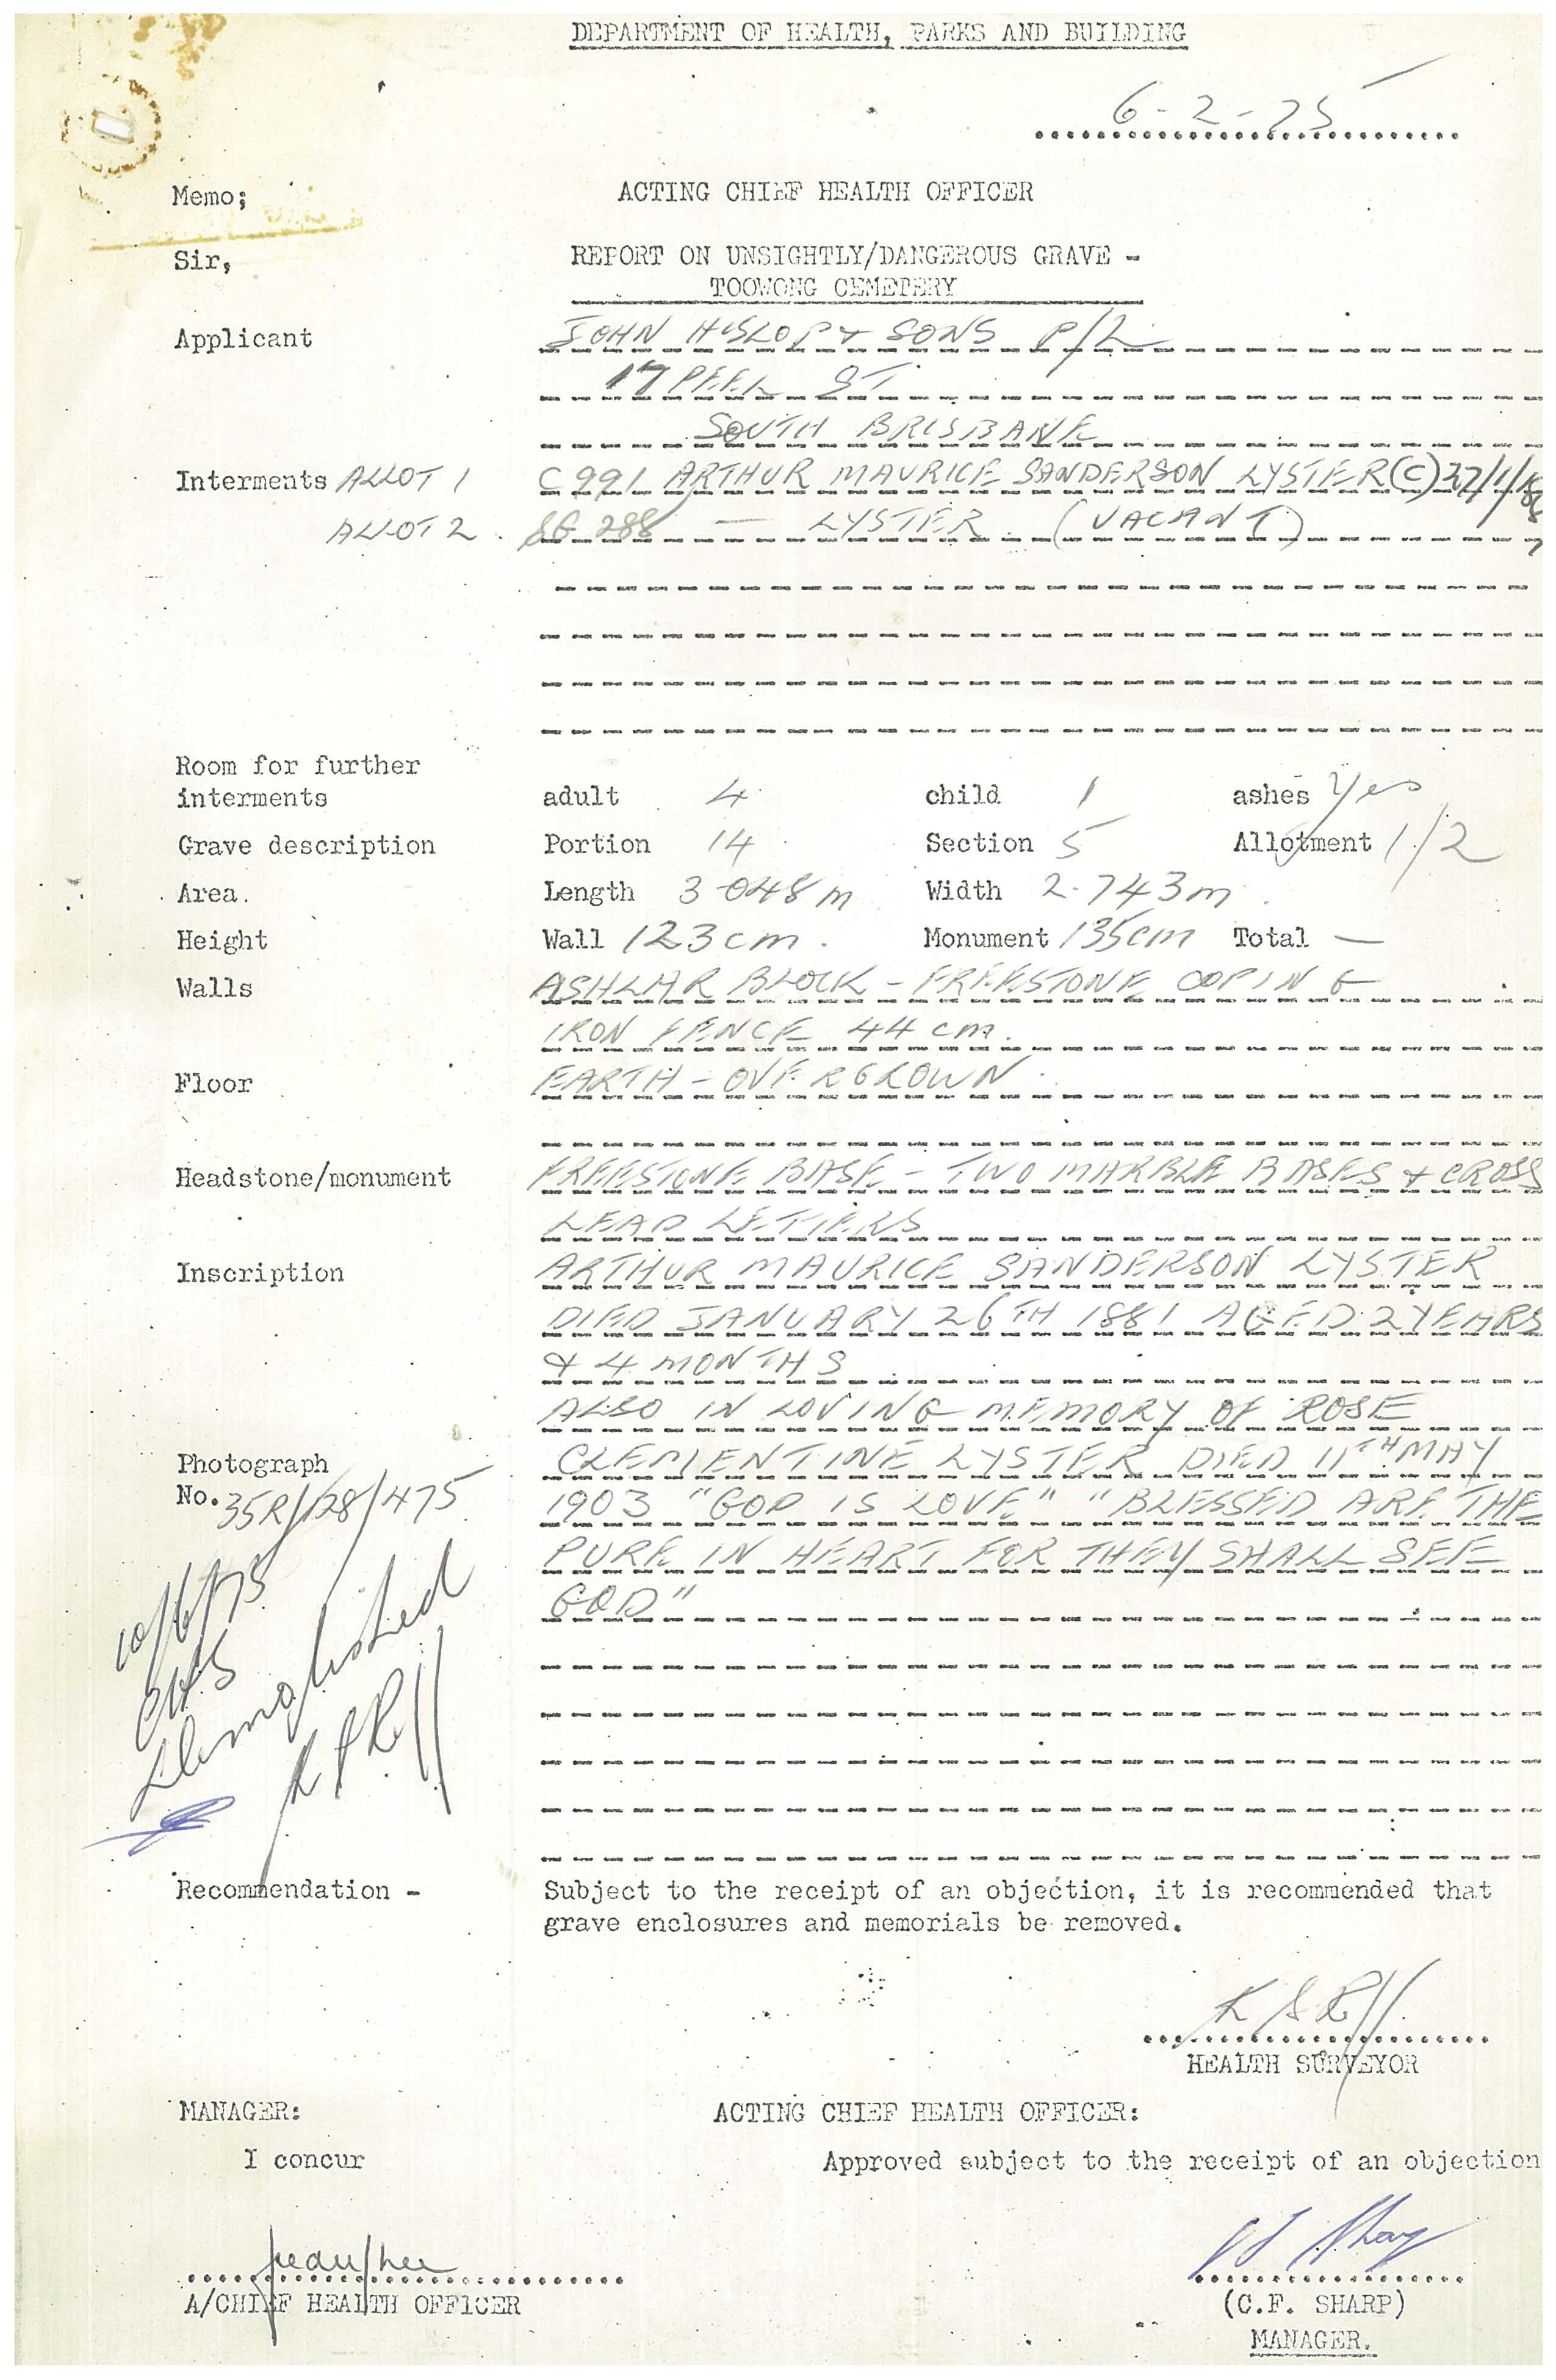 DEPARTMENT OF HEALTH, PARKS AND BUILDING
6-2-75
Memo; ACTING CHIEF HEALTH OFFICER
Sir, REPORT ON UNSIGHTLY/DANGEROUS GRAVE -
TOOWONG CEMETERY
Applicant JOHN HISLOP & SONS P/L
17 PEEL ST.
SOUTH BRISBANE
Interments ALLOT 1 C991 ARTHUR MAURICE SANDERSON LYSTER (C) 27/1/
ALLOT 2. 288 — LYSTER. (VACANT)
Room for further
interments adult 4 child 1 ashes Yes
Grave description Portion 14 Section 5 Allotment 1/2
Area. Length 3.048m Width 2.743m
Height Wall 123cm. Monument 135cm Total —
Walls ASHLAR BLOCK - FREESTONE COPING
IRON FENCE 44 cm.
Floor EARTH - OVERGROWN.
Headstone/monument FREESTONE BASE - TWO MARBLE BASES & CROSS
LEAD LETTERS
Inscription ARTHUR MAURICE SANDERSON LYSTER
DIED JANUARY 26TH 1881 AGED 2 YEARS
& 4 MONTHS
ALSO IN LOVING MEMORY OF ROSE
Photograph CLEMENTINE LYSTER DIED 11TH MAY
No. 35R/128/475 1903 "GOD IS LOVE" "BLESSED ARE THE
PURE IN HEART FOR THEY SHALL SEE
GOD"
10/6/75
Demolished
Recommendation - Subject to the receipt of an objection, it is recommended that
grave enclosures and memorials be removed.
HEALTH SURVEYOR
MANAGER: ACTING CHIEF HEALTH OFFICER:
I concur Approved subject to the receipt of an objection
A/CHIEF HEALTH OFFICER (C.F. SHARP)
MANAGER.